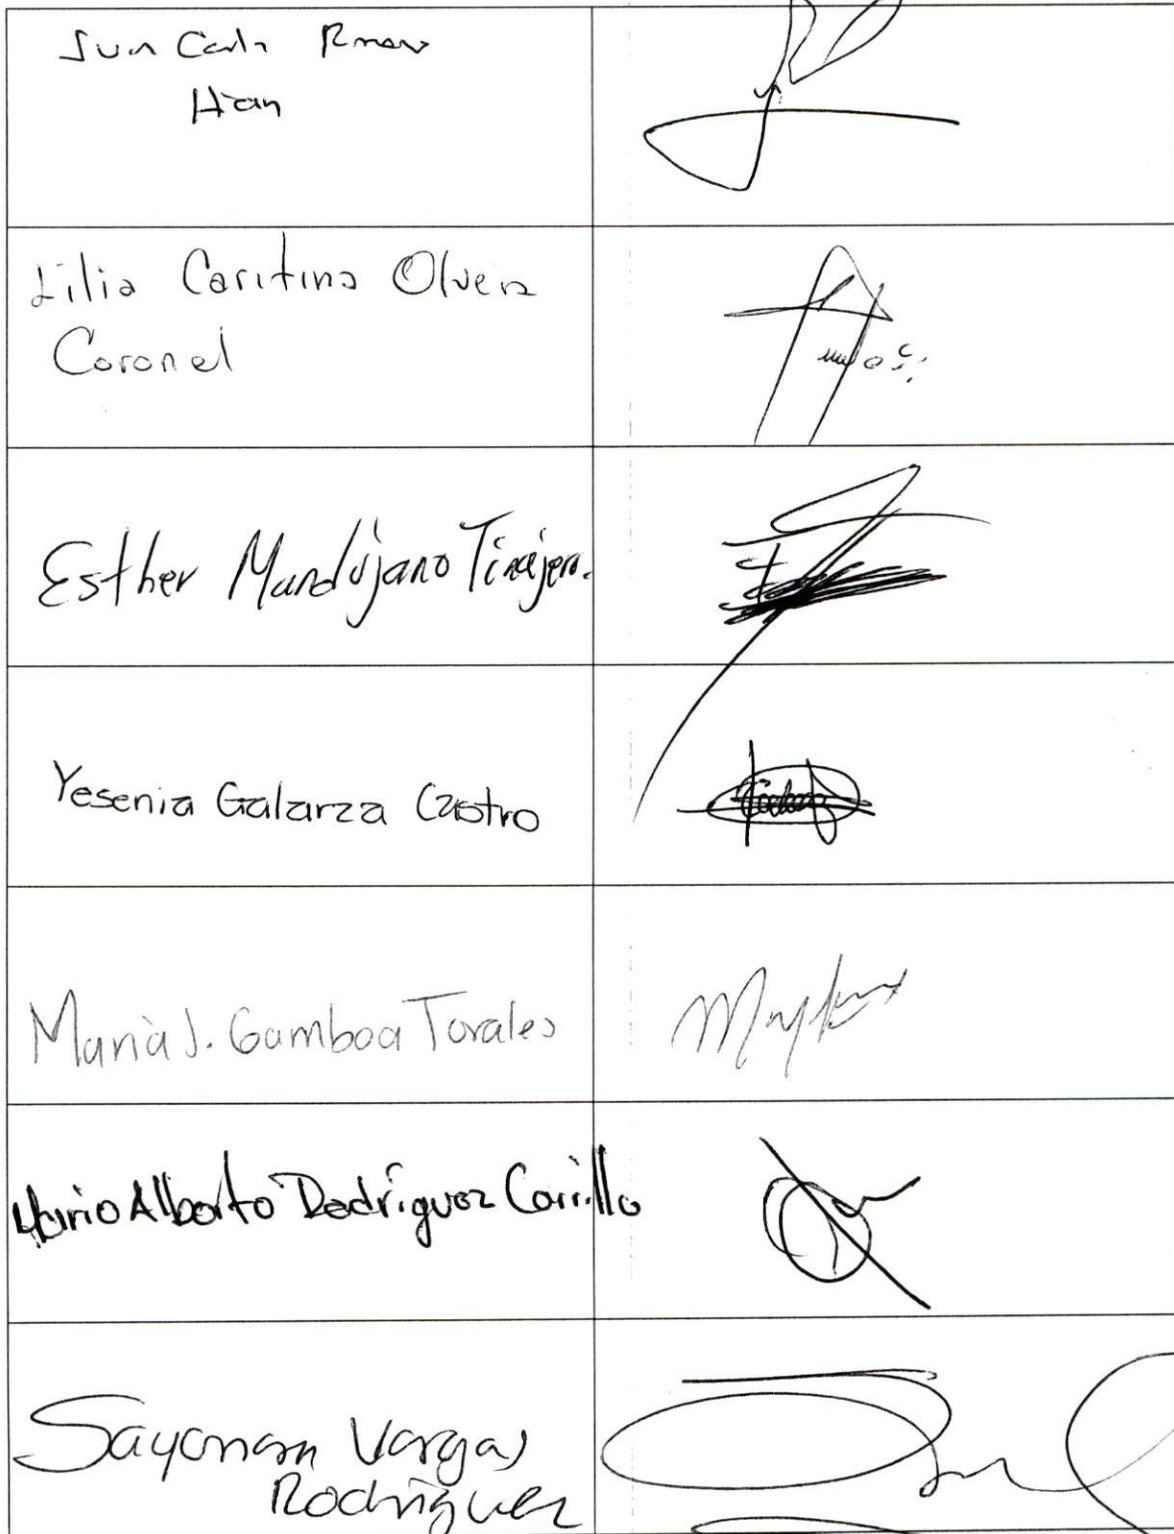 Juan Carlos Romero
Lilia Caritina Olvera
Coronel
Esther Mandújano Tinajero.
Yesenia Galarza Castro
María J. Gamboa Torales
Mario Alberto Rodríguez Carrillo
Sayonara Vargas
Rodríguez